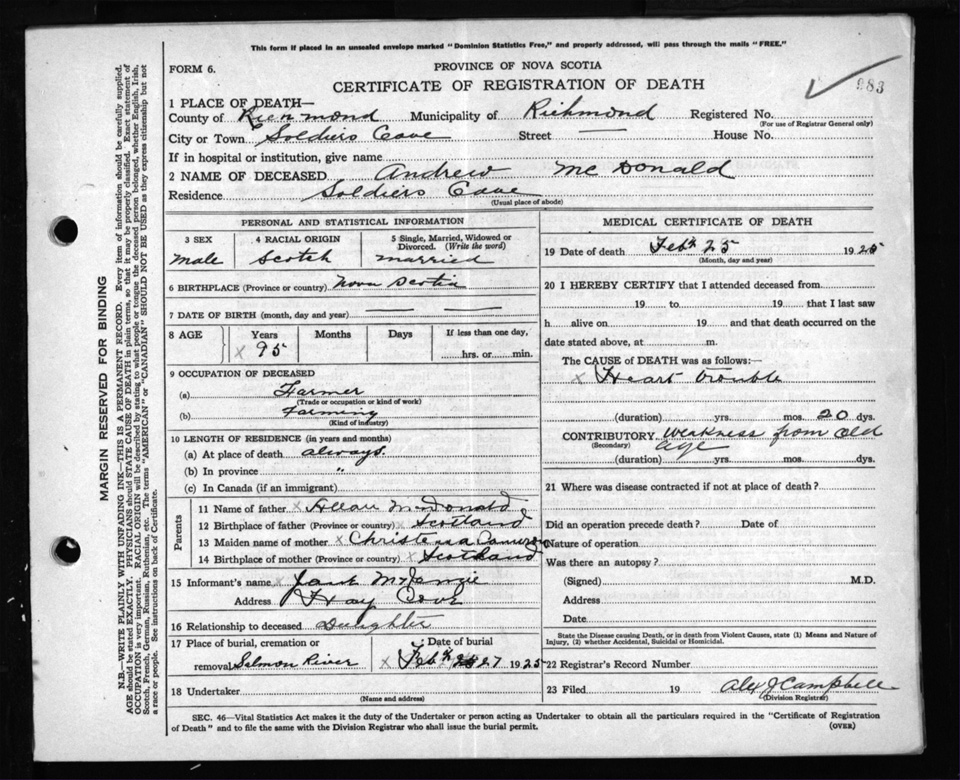 This form if placed in an unsealed envelope marked "Dominion Statistics Free," and properly addressed, will pass through the mails "FREE."
FORM 6.
PROVINCE OF NOVA SCOTIA
CERTIFICATE OF REGISTRATION OF DEATH
983
1 PLACE OF DEATH—
County of Richmond Municipality of Richmond Registered No.
(For use of Registrar General only)
City or Town Soldiers Cove Street — House No.
If in hospital or institution, give name
2 NAME OF DECEASED Andrew McDonald
Residence Soldiers Cove
(Usual place of abode)
PERSONAL AND STATISTICAL INFORMATION
3 SEX 4 RACIAL ORIGIN 5 Single, Married, Widowed or Divorced. (Write the word)
Male Scotch married
6 BIRTHPLACE (Province or country) Nova Scotia
7 DATE OF BIRTH (month, day and year) — —
8 AGE Years Months Days If less than one day,
x 95 hrs. or min.
9 OCCUPATION OF DECEASED
(a) Farmer
(Trade or occupation or kind of work)
(b) Farming
(Kind of industry)
10 LENGTH OF RESIDENCE (in years and months)
(a) At place of death always.
(b) In province "
(c) In Canada (if an immigrant)
Parents
11 Name of father x McDonald
12 Birthplace of father (Province or country) x Scotland
13 Maiden name of mother x Cameron
14 Birthplace of mother (Province or country) x Scotland
15 Informant's name x
Address Hay Cove
16 Relationship to deceased Daughter
17 Place of burial, cremation or Date of burial
removal Salmon River x Feby 27 1925
18 Undertaker
(Name and address)
MEDICAL CERTIFICATE OF DEATH
19 Date of death Feby 25 1925
(Month, day and year)
20 I HEREBY CERTIFY that I attended deceased from
19 to 19 that I last saw
h alive on 19 and that death occurred on the
date stated above, at m.
The CAUSE of DEATH was as follows:—
x Heart trouble
(duration) yrs. mos. 20 dys.
CONTRIBUTORY weakness from old
(Secondary) age
(duration) yrs. mos. dys.
21 Where was disease contracted if not at place of death?
Did an operation precede death? Date of
Nature of operation
Was there an autopsy?
(Signed) M.D.
Address
Date
State the Disease causing Death, or in death from Violent Causes, state (1) Means and Nature of
Injury, (2) whether Accidental, Suicidal or Homicidal.
22 Registrar's Record Number
23 Filed 19 Alex J Campbell
(Division Registrar)
SEC. 46—Vital Statistics Act makes it the duty of the Undertaker or person acting as Undertaker to obtain all the particulars required in the "Certificate of Registration
of Death" and to file the same with the Division Registrar who shall issue the burial permit. (OVER)
MARGIN RESERVED FOR BINDING
N.B.—WRITE PLAINLY WITH UNFADING INK—THIS IS A PERMANENT RECORD. Every item of information should be carefully supplied.
AGE should be stated EXACTLY. PHYSICIANS should STATE CAUSE OF DEATH in plain terms, so that it may be properly classified. Exact statement of
OCCUPATION is very important. RACIAL ORIGIN will be described by stating to what people or tongue the deceased person belonged, whether English, Irish,
Scotch, French, German, Russian, Ruthenian, etc. The terms "AMERICAN" or "CANADIAN" SHOULD NOT BE USED as they express citizenship but not
a race or people. See instructions on back of Certificate.